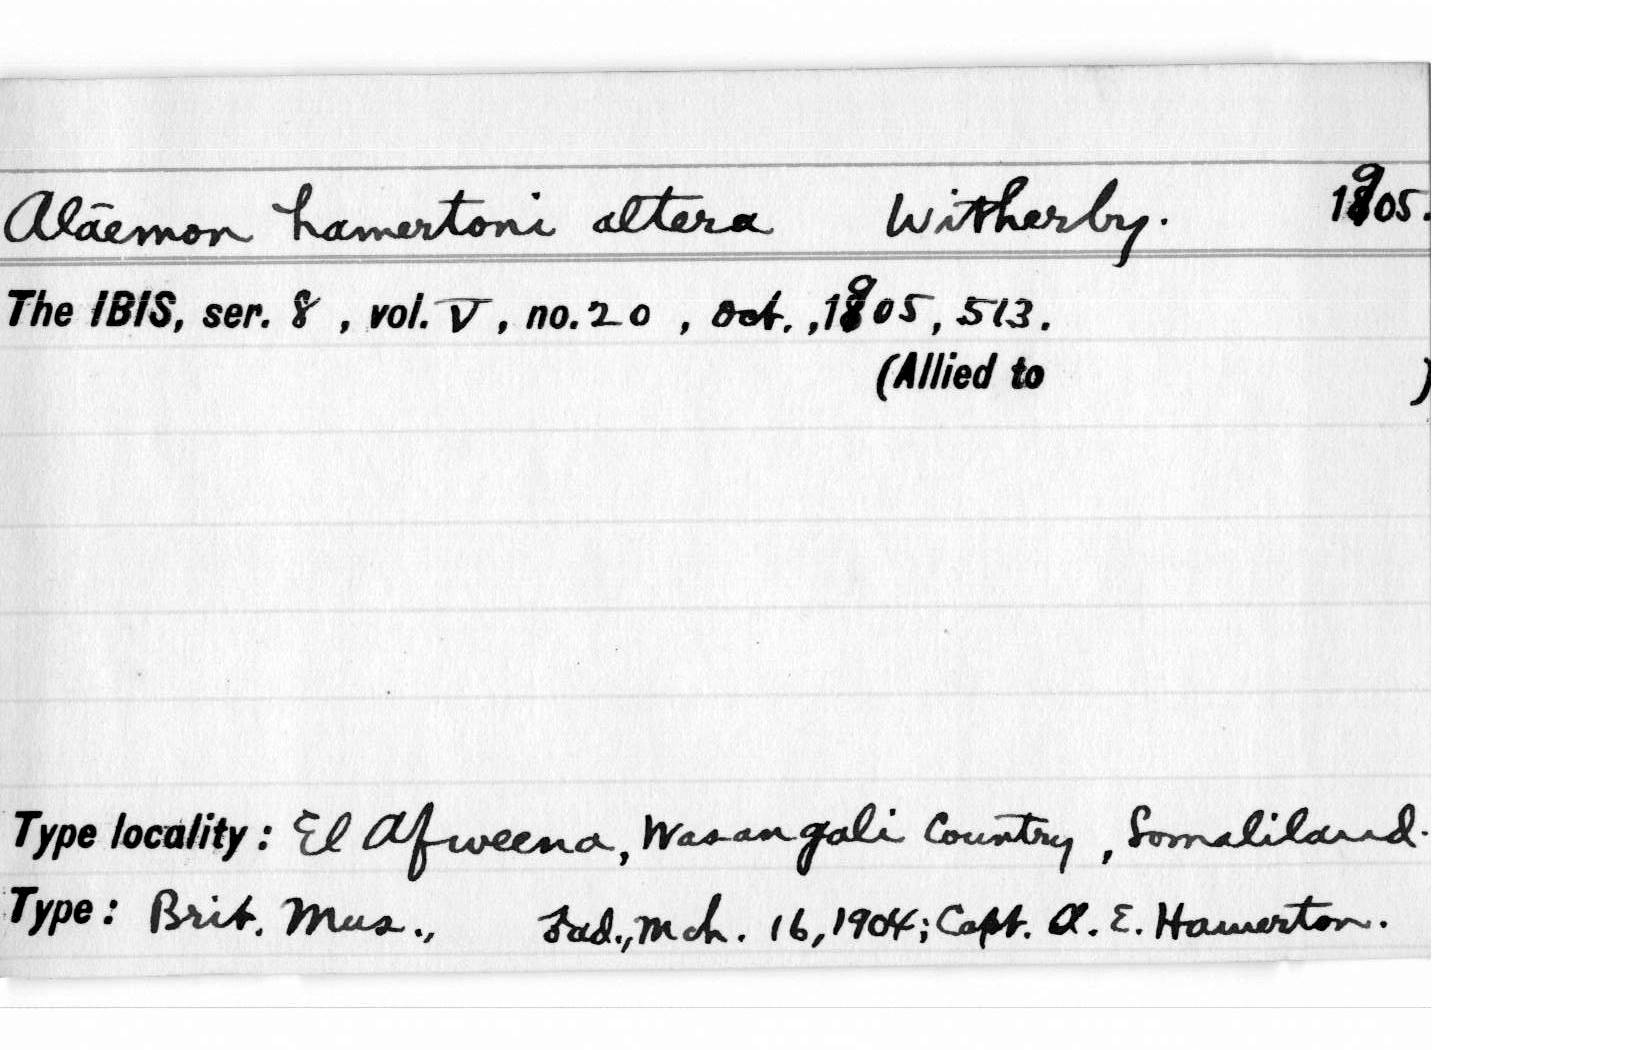 Alāemon hamertoni altera Witherby. 1905.
The IBIS, ser. 8, vol. V, no. 20, Oct., 1905, 513.
(Allied to )
Type locality: El Afweena, Warsangali Country, Somaliland.
Type: Brit. Mus., ad., Mch. 16, 1904; Capt. A. E. Hamerton.